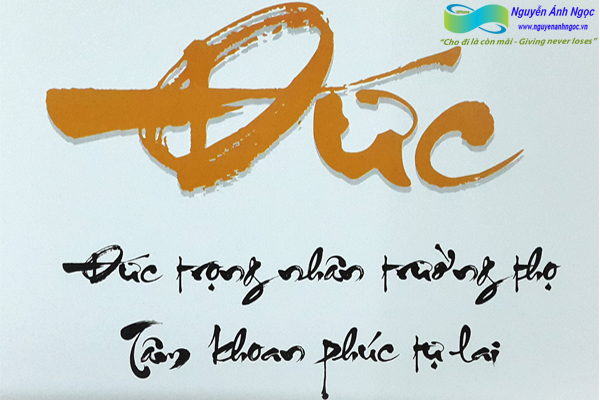 Nguyễn Ánh Ngọc
www.nguyenanhngoc.vn
"Cho đi là còn mãi - Giving never loses"
Đức
Đức trọng nhân trường thọ
Tâm khoan phúc tự lai